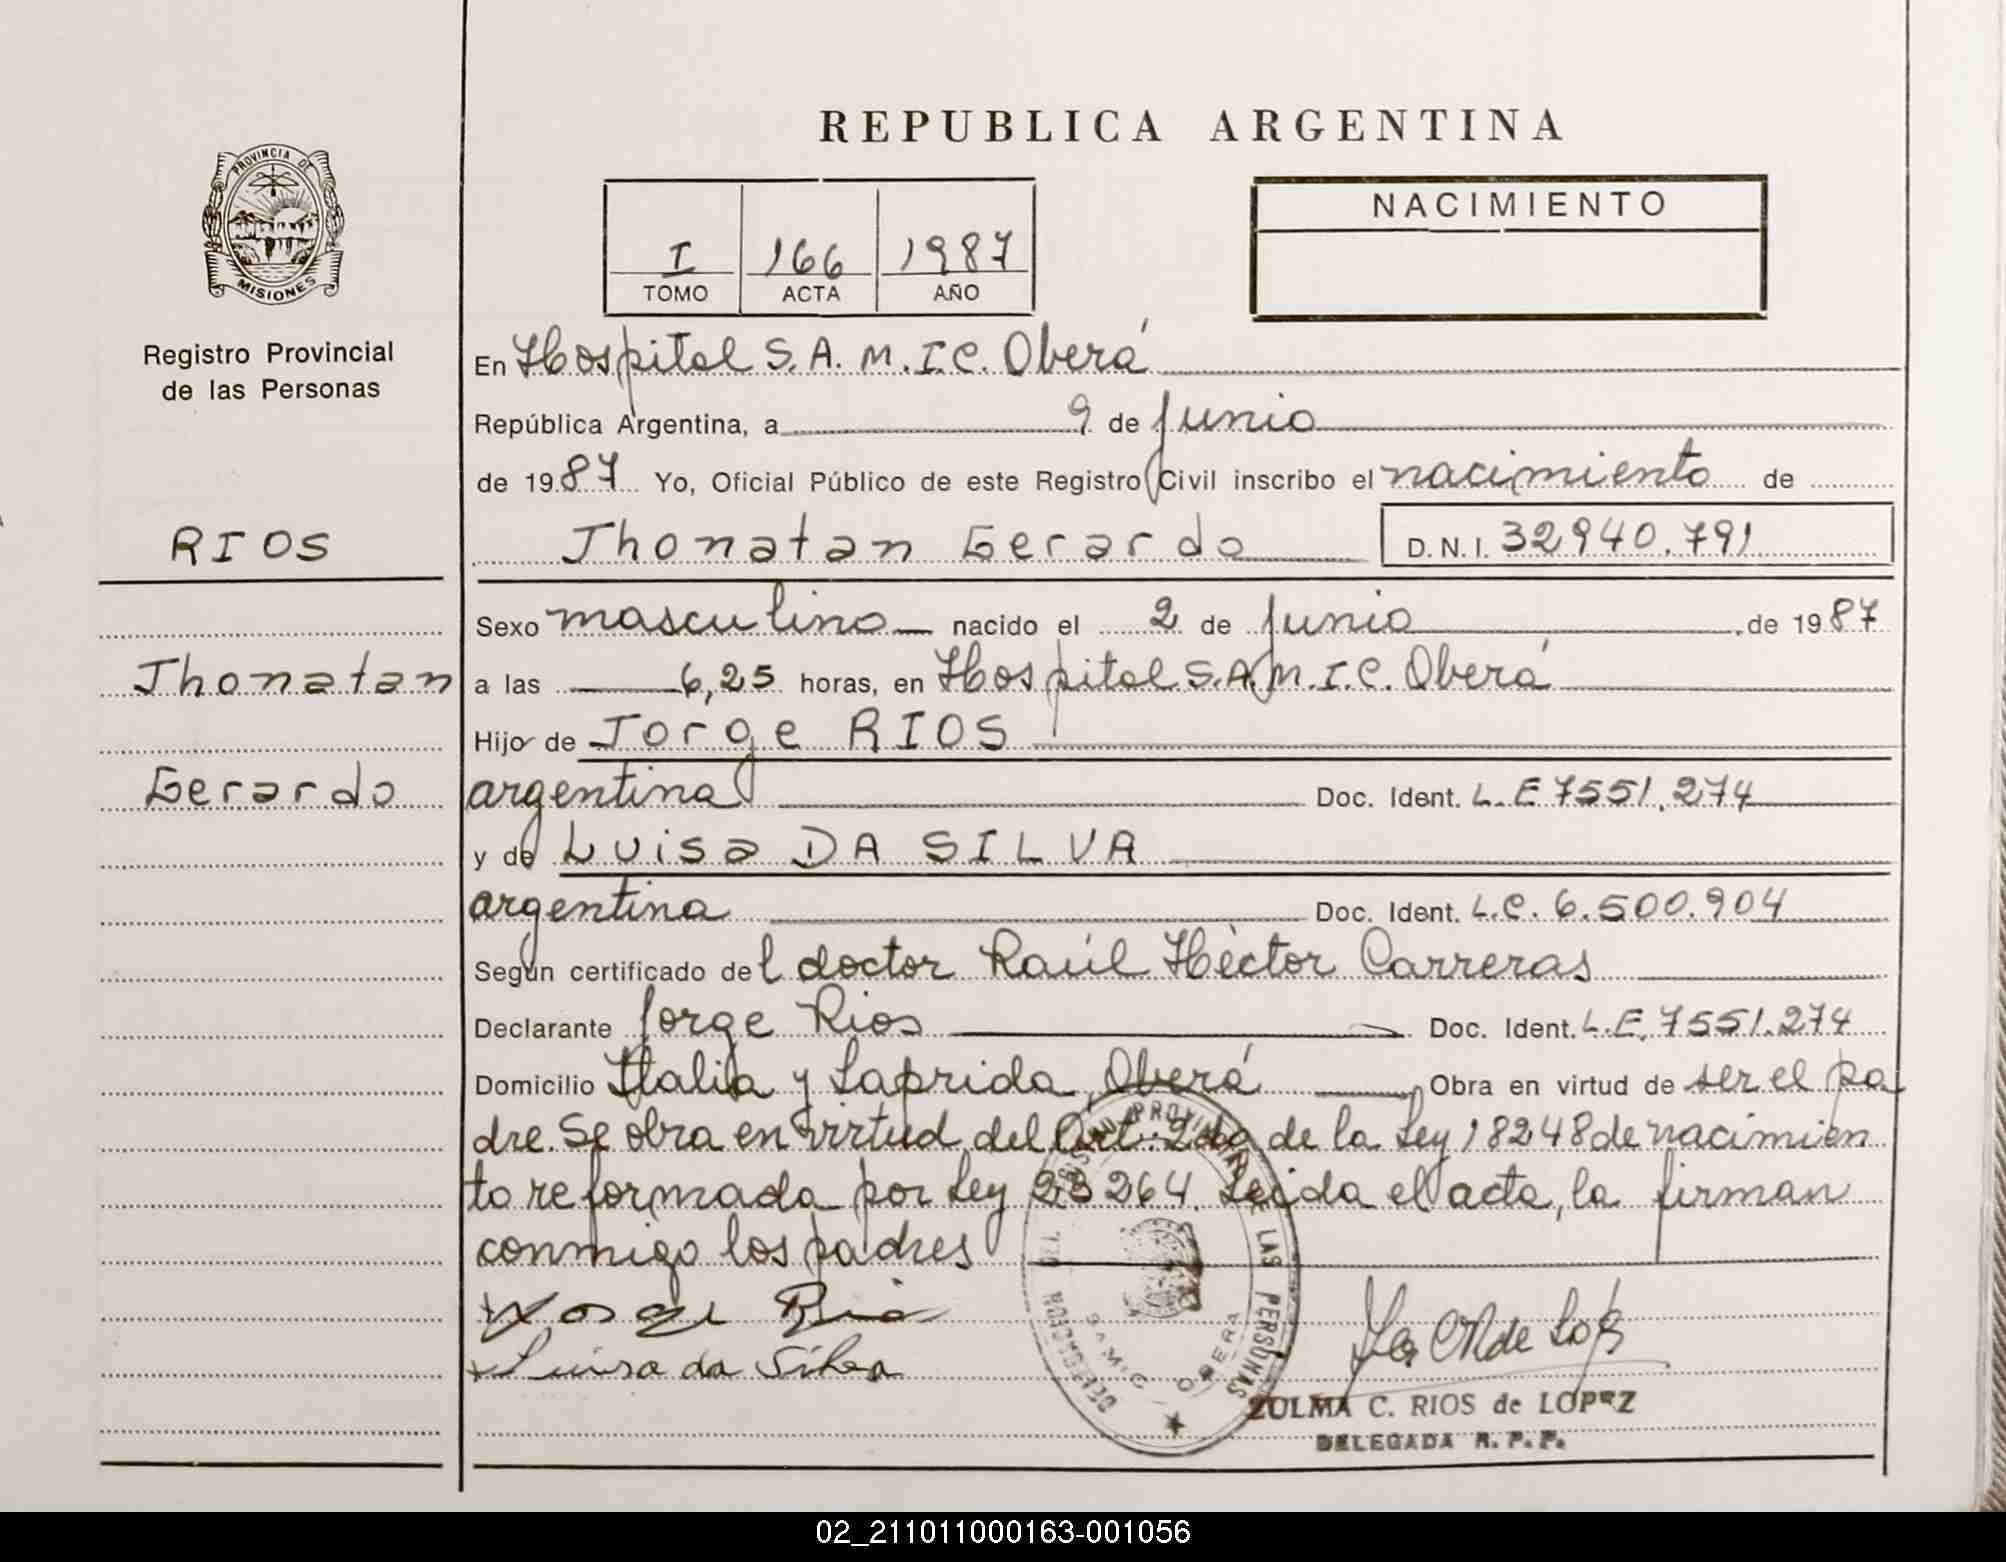 REPUBLICA ARGENTINA
PROVINCIA DE
MISIONES
Registro Provincial
de las Personas
I 166 1987
TOMO ACTA AÑO
NACIMIENTO
En Hospital S.A.M.I.C. Oberá
República Argentina, a 9 de Junio
de 1987 Yo, Oficial Público de este Registro Civil inscribo el nacimiento de
RIOS
Jhonatan Gerardo D.N.I. 32940.791
Sexo masculino nacido el 2 de Junio de 1987
Jhonatan
a las 6,25 horas, en Hospital S.A.M.I.C. Oberá
Hijo de Jorge RIOS
Gerardo
argentina Doc. Ident. L.E 7551.274
y de Luisa DA SILVA
argentina Doc. Ident. L.C. 6.500.904
Según certificado del doctor Raúl Héctor Carreras
Declarante Jorge Rios Doc. Ident. L.E. 7551.274
Domicilio Italia y Laprida, Oberá Obra en virtud de ser el pa
dre. Se obra en virtud del Art: 2do de la Ley 18248 de nacimien
to reformada por Ley 23264. Leida el acta, la firman
conmigo los padres
Jorge Rios
Luisa da Silva
DELEGACION DEL REGISTRO PROVINCIAL DE LAS PERSONAS
SAMIC OBERA
ZULMA C. RIOS de LOPEZ
DELEGADA R. P. P.
02_211011000163-001056